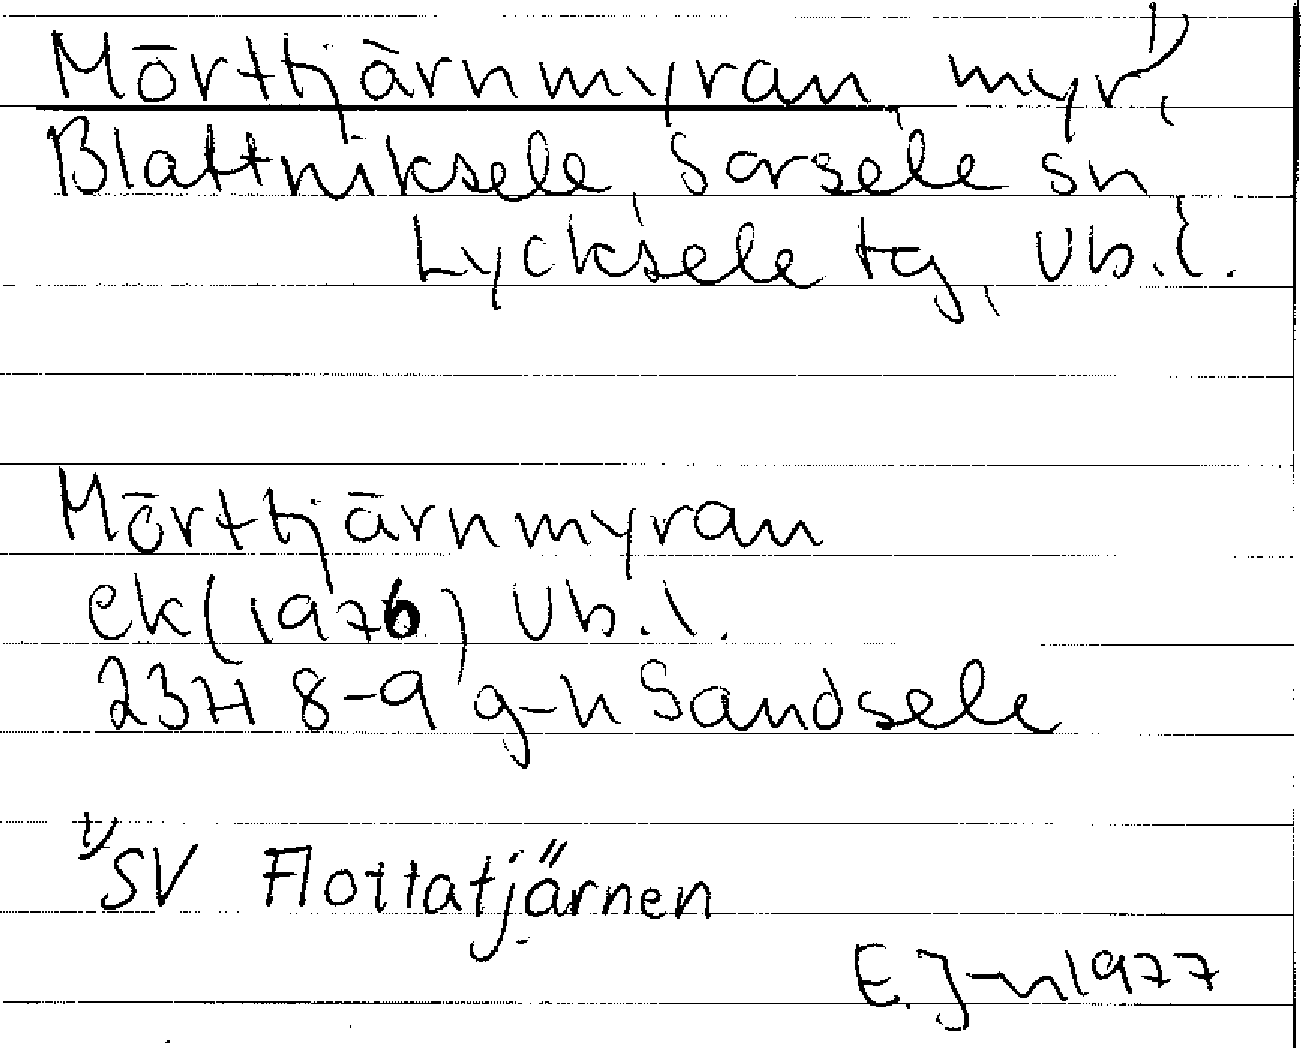 Mörttjärnmyran, myr¹⁾,
Blattniksele, Sorsele sn
Lycksele tg, Vb.l.
Mörttjärnmyran
ek (1976) Vb.l.
23H 8-9 g-h Sandsele
¹⁾SV Flottatjärnen
E. J-n 1977